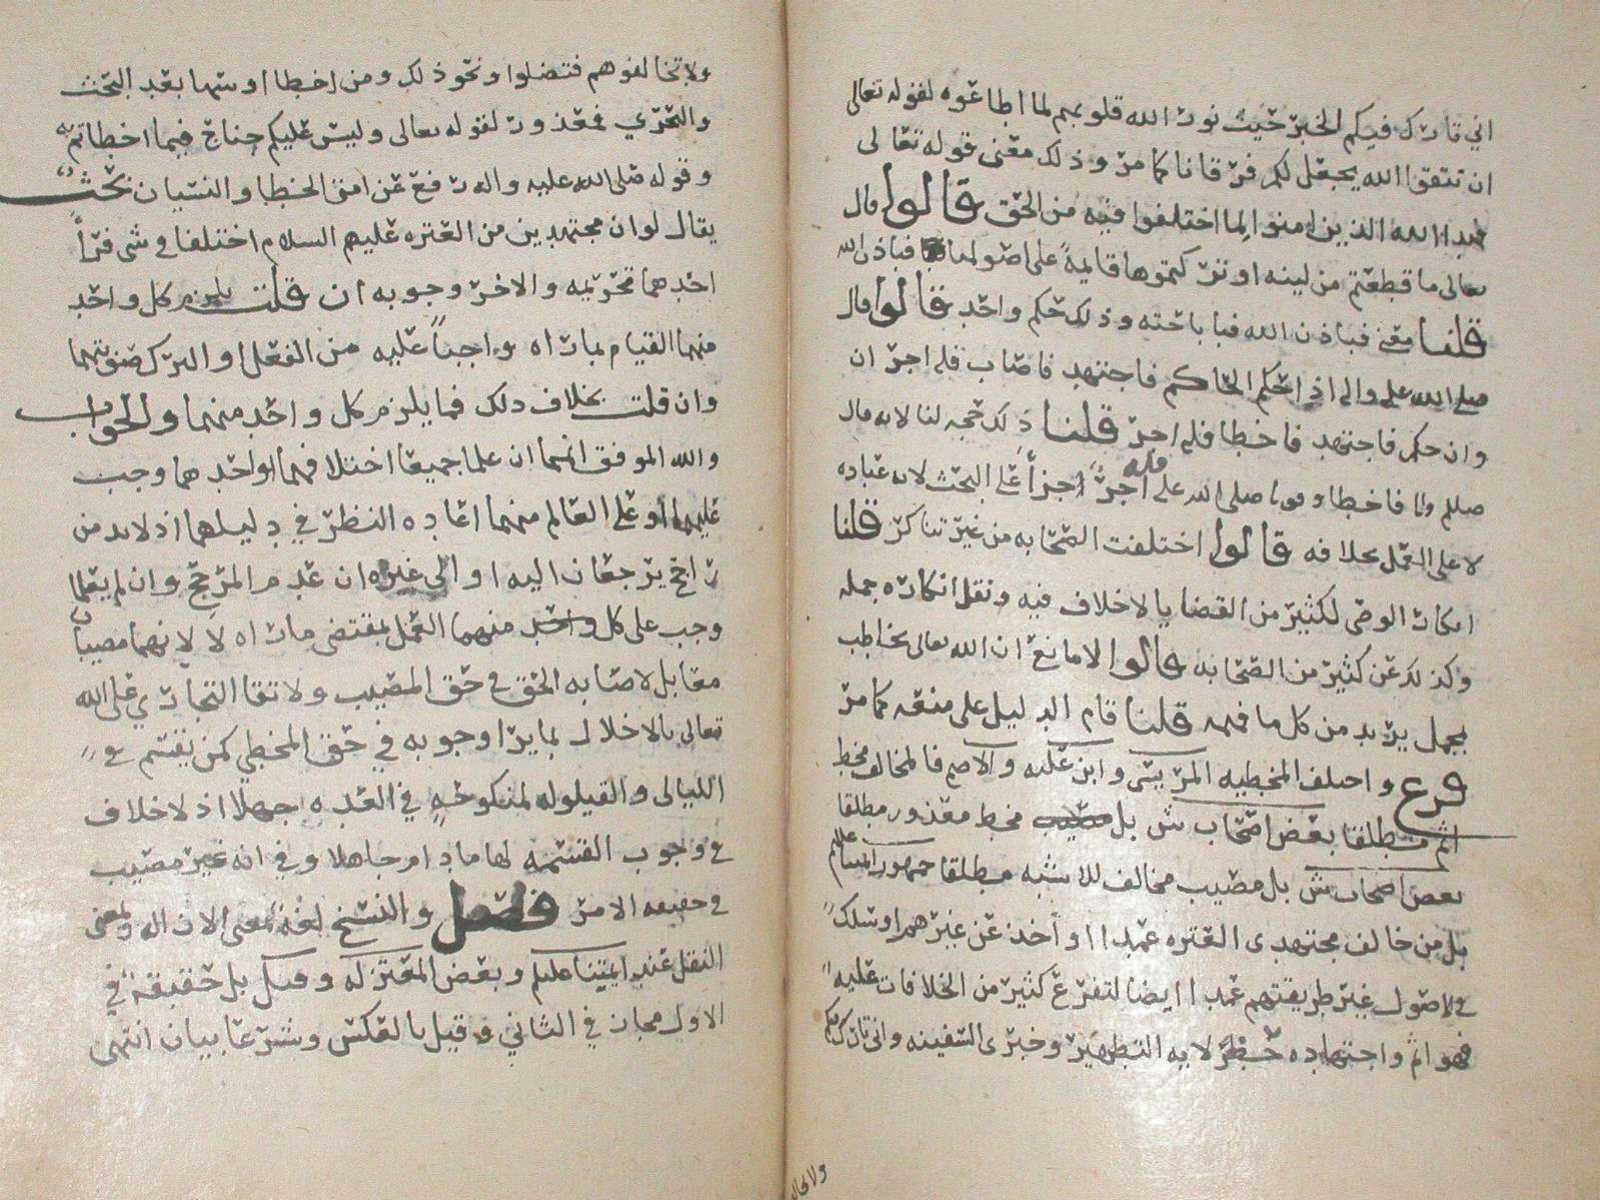 اني تارك فيكم الخبر حيث نور الله قلوبهم لما اطاعوه لقوله تعالى
ان تتقوا الله يجعل لكم فرقانا كما مر وذلك معنى قوله تعالى
فهدا الله الذين امنوا لما اختلفوا فيه من الحق قالوا قال
تعالى ما قطعتم من لينه او تركتموها قايمة على اصولها فباذن الله
قلنا معنى فباذن الله فبا باحته وذلك حكم واحد قالوا قال
صلى الله علي والى اذا حكم الحاكم فاجتهد فاصاب فله اجران
وان حكم فاجتهد فاخطا فله اجر قلنا ذلك حجه لنا لانه قال
صللم والا فاخطا وقوله صلى الله علي فله اجر اجزأ على البحث لانه عباده
لا على العمل بخلافه قالوا اختلفت الصحابه من غير تناكر قلنا
انكار الوصي لكثير من القضايا لا خلاف فيه ونقل انكاره جمله
وكذلك عن كثير من الصحابه قالوا لا مانع ان الله تعالى يخاطب
بمجمل يريد من كل ما فهمه قلنا قام الدليل على منعه كما مر
فرع واختلف المخطيه المريسي وابن عليه والاصم فالمخالف مخط
اثم مطلقا بعض اصحاب ش بل مصيب مخط معذور مطلقا
بعض اصحاب ش بل مصيب مخالف للاشبه مطلقا جمهور ايمتنا عليلم
بل من خالف مجتهدي العتره عمدا او أخذ عن غيرهم او سلك
في الاصول غير طريقتهم عمدا ايضا لتفرع كثير من الخلافات عليه
فهو اثم واجتهاده حظر لايه التطهير وخبري السفينه واني تارك فيكم
ولا تخالفو
ولا تخالفوهم فتضلوا ونحو ذلك ومن اخطا او سها بعد البحث
والتحري فمعذور لقوله تعالى وليس عليكم جناح فيما اخطاتم به
وقوله صلى الله عليه واله رفع عن امتي الخطا والنسيان بحث
يقال لو ان مجتهدين من العتره عليهم السلام اختلفا في شي فرأ
احدهما تحريمه والاخر وجوبه ان قلت يلزم كل واحد
منهما القيام بما راه واجباً عليه من الفعل او الترك صوبتهما
وان قلت بخلاف ذلك فما يلزم كل واحد منهما والجواب
والله الموفق انهما ان علما جميعا اختلافهما او احدهما وجب
عليهما او على العالم منهما اعاده النظر في دليلهما اذ لا بد من
راجح يرجعان اليه او الى غيره ان عدم المرجح وان لم يعلما
وجب على كل واحد منهما العمل بمقتضى ما راه لا لانهما مصيبان
مقابل لاصابه الحق في حق المصيب ولا تقا التجاري على الله
تعالى بالاخلال بما يرا وجوبه في حق المخطي كمن يقسم في
الليالى والقيلوله لمنكوحه في العده جهلا اذ لا خلاف
في وجوب القسمه لها ما دام جاهلا وفي انه غير مصيب
في حقيقه الامر فصل والنسخ لغة بمعنى الازاله وبمعنى
النقل عند ايمتنا عليلم وبعض المعتزله وقيل بل حقيقة في
الاول مجاز في الثاني وقيل بالعكس وشرعا بيان انتهى